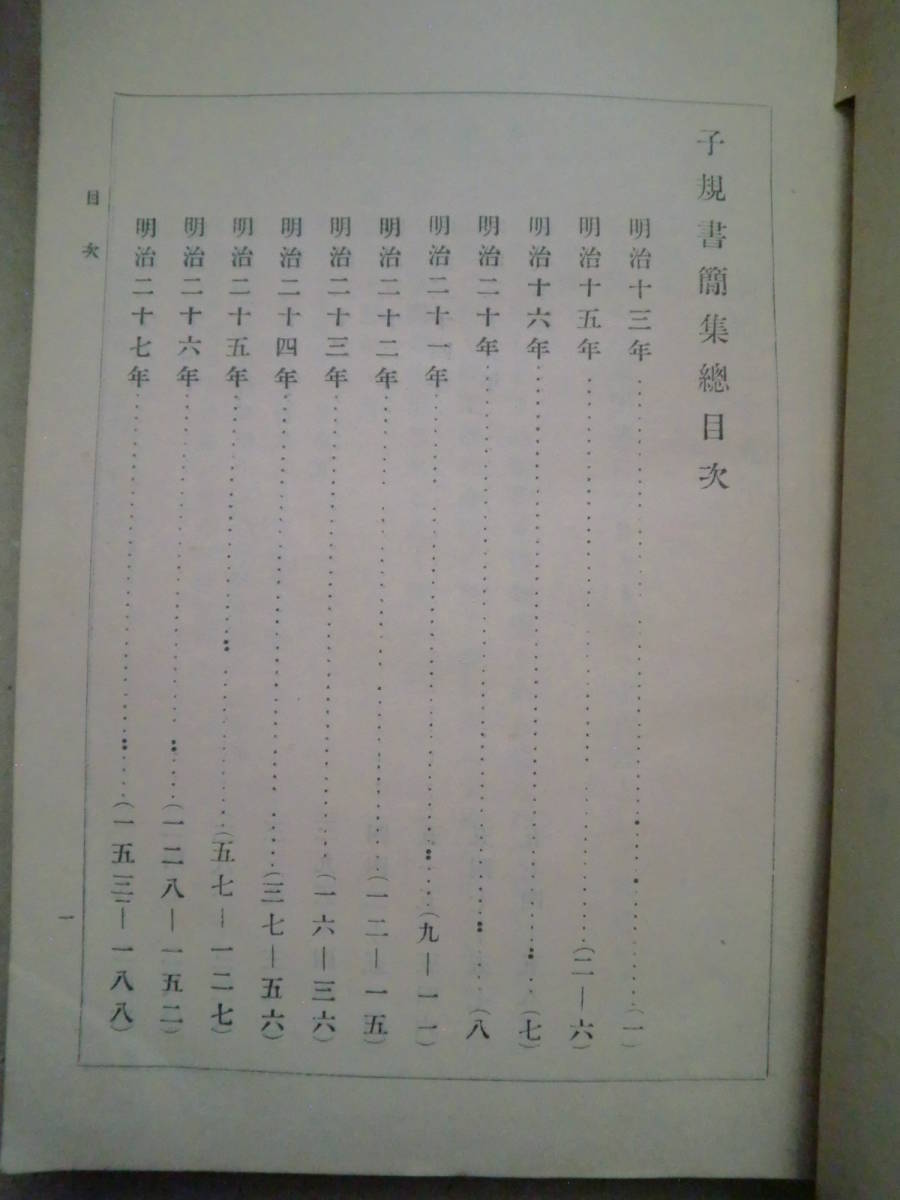 子規書簡集總目次
明治十三年……(一)
明治十五年……(二—六)
明治十六年……(七)
明治二十年……(八
明治二十一年……(九—一一)
明治二十二年……(一二—一五)
明治二十三年……(一六—三六)
明治二十四年……(三七—五六)
明治二十五年……(五七—一二七)
明治二十六年……(一二八—一五二)
明治二十七年……(一五三—一八八)
目次
一